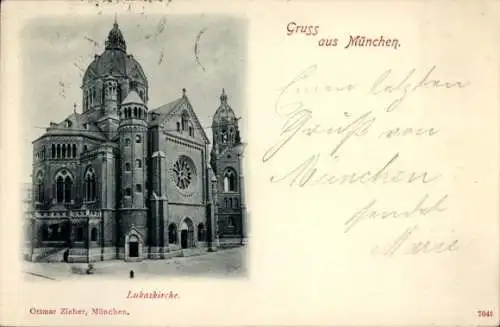 Gruss
aus München.
Einen letzten
Gruß von
München
sendet
Marie
Lukaskirche.
Ottmar Zieher, München.